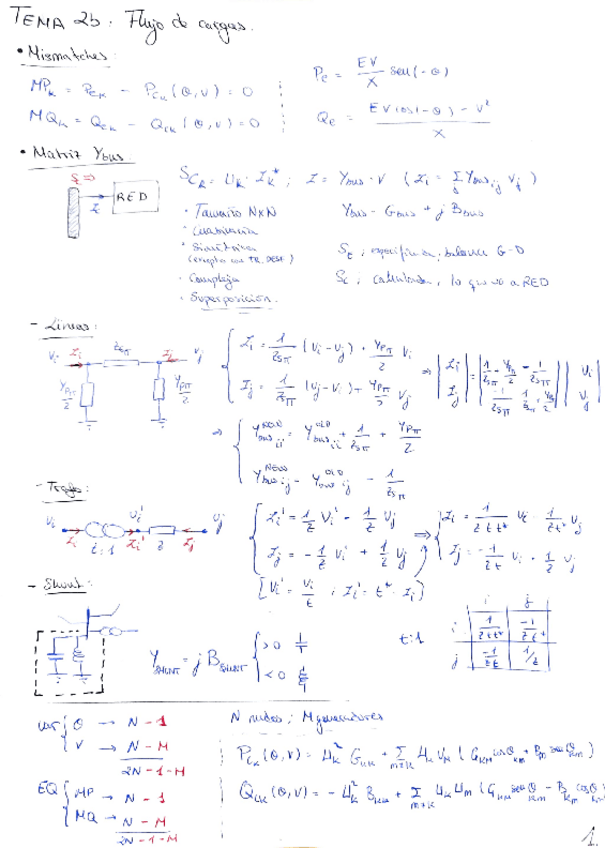 TEMA 2b: Flujo de cargas.
• Mismatches:
MPk = Pek − Pck (θ, v) = 0
MQk = Qek − Qck (θ, v) = 0
Pe = EV/X sen(-θ)
Qe = (EV cos(-θ) − V²)/X
• Matriz Ybus
Sc⇒
RED
I
Sck = Uk · Ik*; I = Ybus · V (Ii = Σj Ybusij Vj)
· Tamaño NxN
Ybus = Gbus + j Bbus
· Cuadrada
· Simétrica
(excepto con TR. DESF.)
Se; especificada; balance G-D
· Compleja
Sc; calculada, lo que va a RED
· Superposición.
- Líneas:
Vi Ii Zsπ Ij Vj
Ypπ/2 Ypπ/2
Ii = 1/Zsπ (Vi − Vj) + Ypπ/2 Vi
Ij = 1/Zsπ (Vj − Vi) + Ypπ/2 Vj
⇒ |Ii Ij| = |1/Zsπ + Ypπ/2 -1/Zsπ -1/Zsπ 1/Zsπ + Ypπ/2| |Vi Vj|
⇒ Ybus ii NEW = Ybus ii OLD + 1/Zsπ + Ypπ/2
Ybus ij NEW = Ybus ij OLD − 1/Zsπ
- Trafo:
Vi Vi' Vj
Ii t:1 Ii' Z Ij
Ii' = 1/Z Vi' − 1/Z Vj
Ij = −1/Z Vi' + 1/Z Vj
⇒ Ii = 1/(Z t t*) Vi − 1/(Z t*) Vj
Ij = −1/(Z t) Vi + 1/Z Vj
[Vi' = Vi/t ; Ii' = t* · Ii]
- Shunt:
Yshunt = j Bshunt
>0
<0
t:1
i j
i 1/(Z t t*) -1/(Z t*)
j -1/(Z t) 1/Z
var θ → N-1
V → N-M
2N-1-M
EQ MP → N-1
MQ → N-M
2N-1-M
N nudos; M generadores
Pck (θ,v) = Uk² Gkk + Σm≠k Uk Um (Gkm cosθkm + Bkm senθkm)
Qck (θ,v) = − Uk² Bkk + Σm≠k Uk Um (Gkm senθkm − Bkm cosθkm)
1.